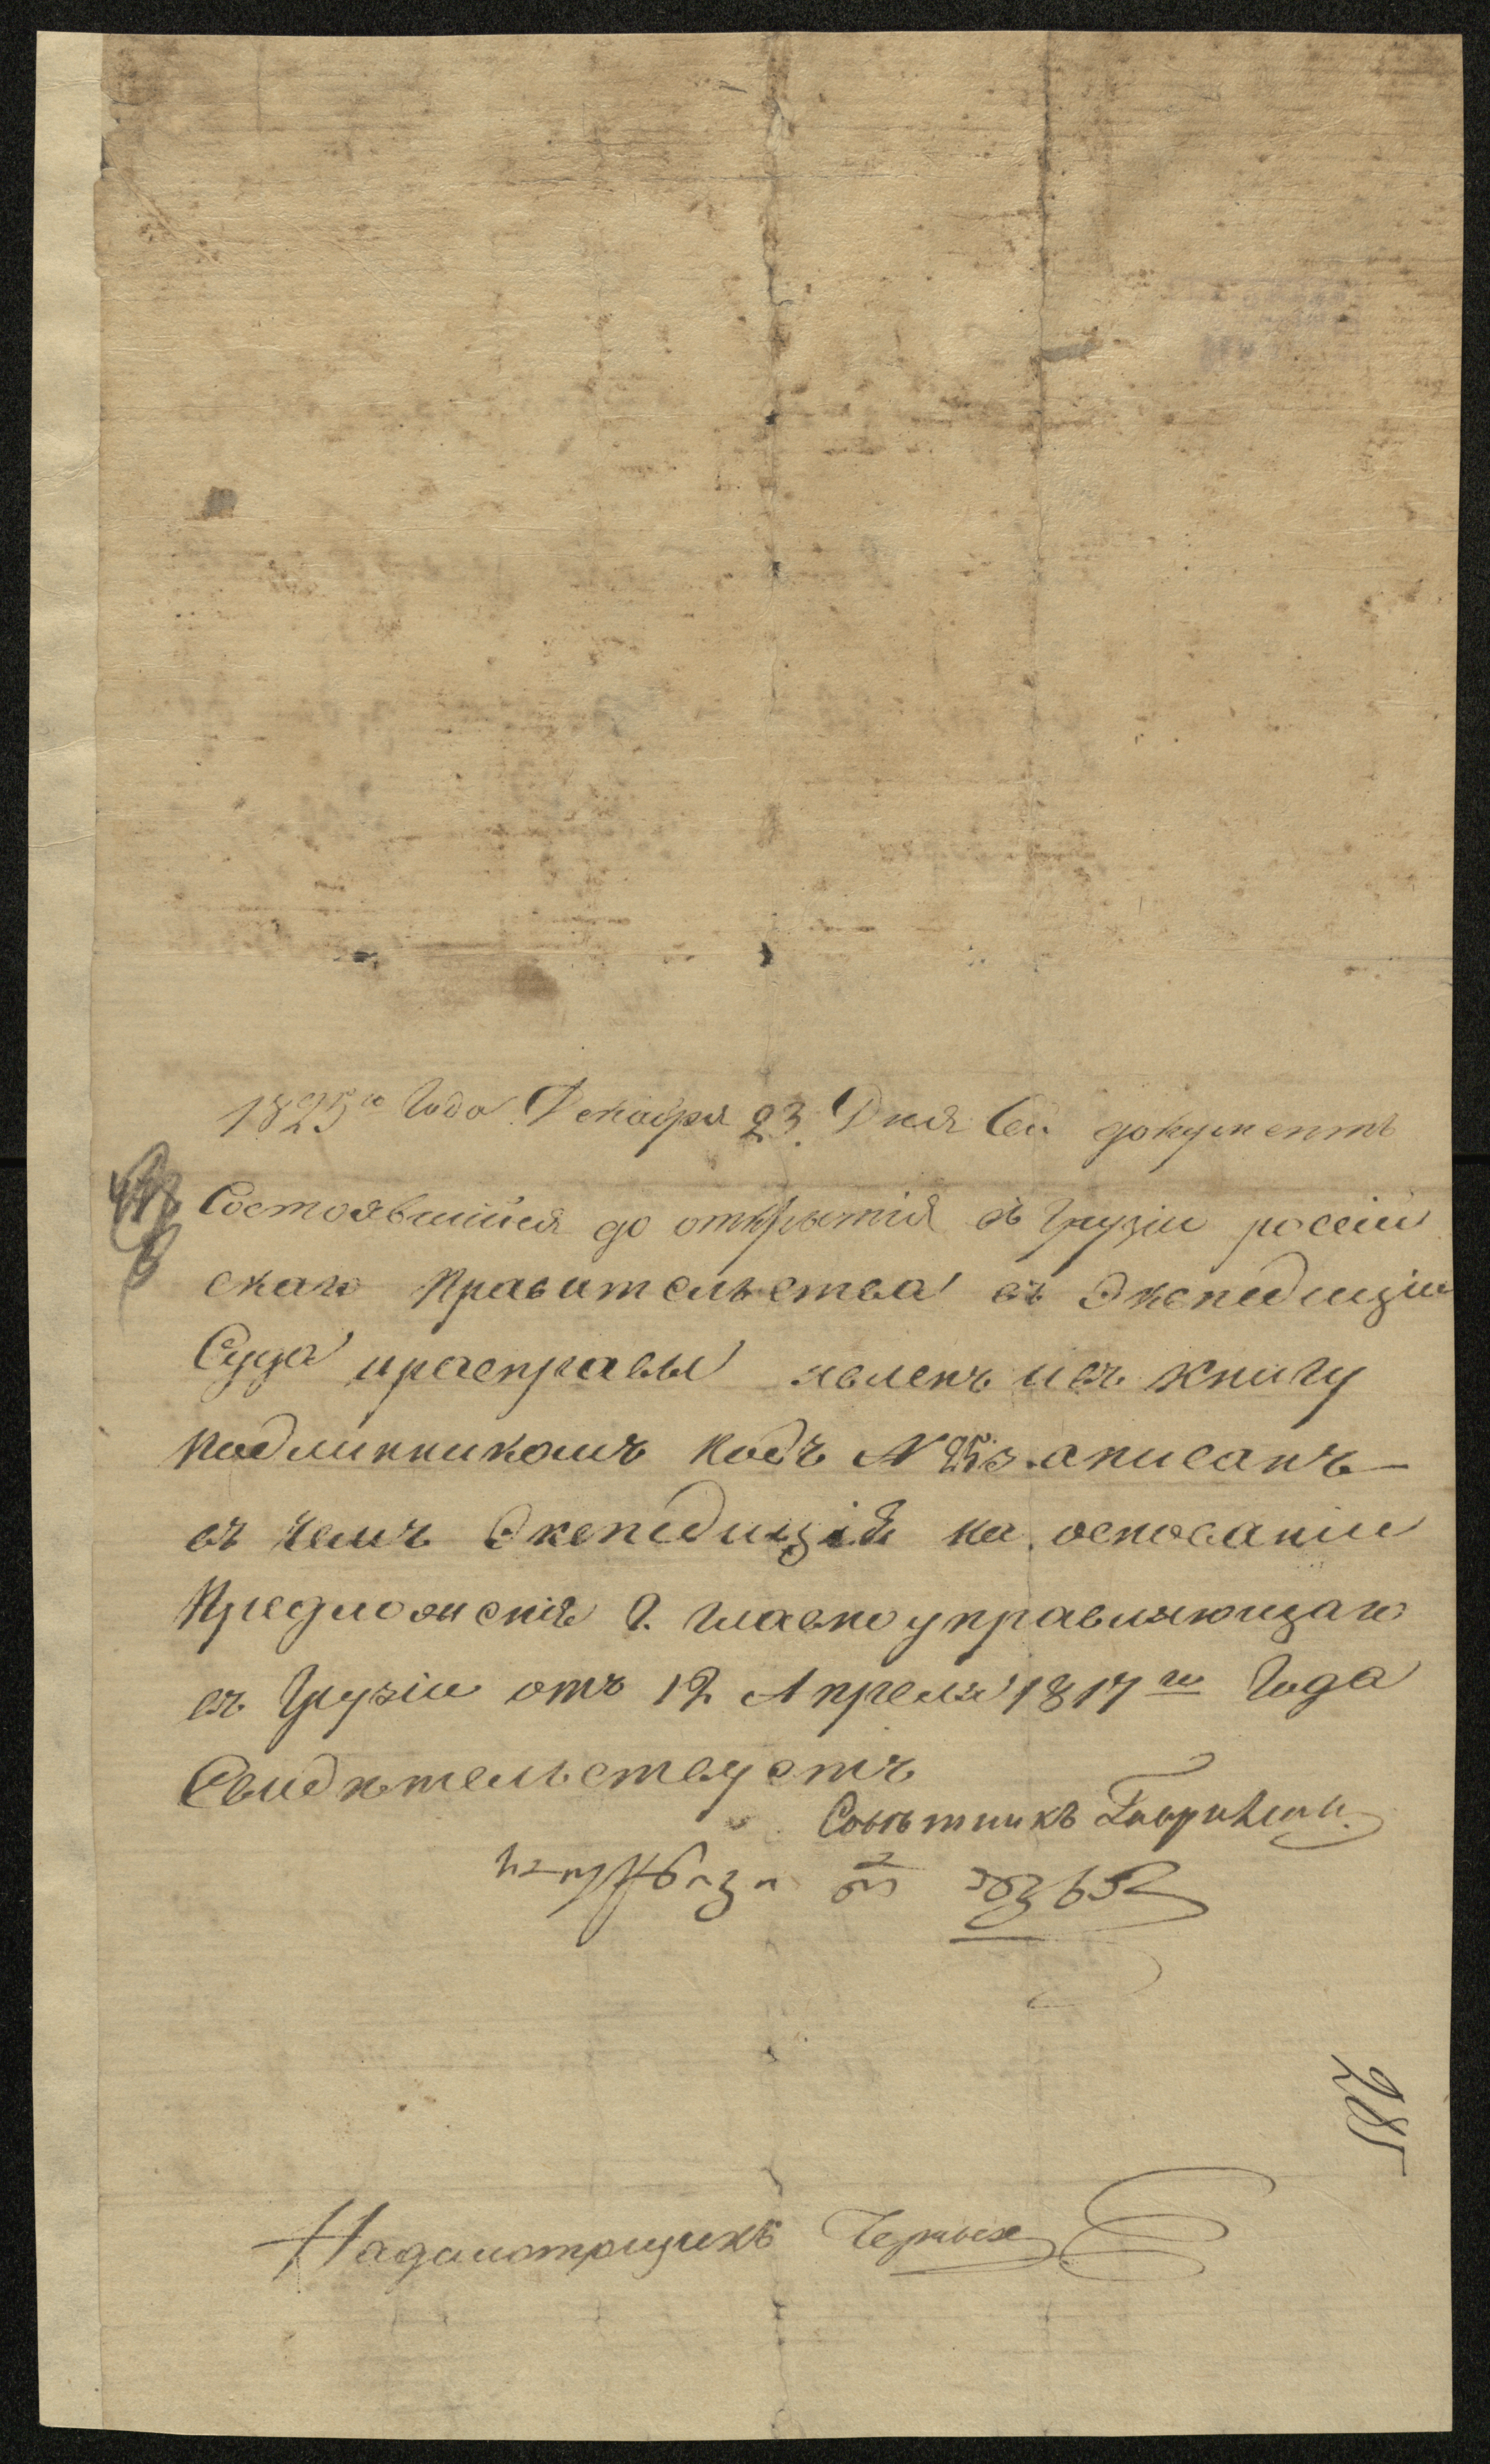 1825го Года Декабря 23. Дня Сей документъ
Состоявшийся до открытія въ Грузіи россій
скаго Правительства въ Экспедицію
Суда ирасправы явленъ ивъ книгу
подлинникомъ подъ N 253 записанъ
въ чемъ Экспедиція на основаніи
Предложенія Г. главноуправляющаго
въ Грузіи отъ 12 Апреля 1817го Года
Свидѣтельствуетъ
Совѣтникъ
Надсмотрщикъ Черных
285